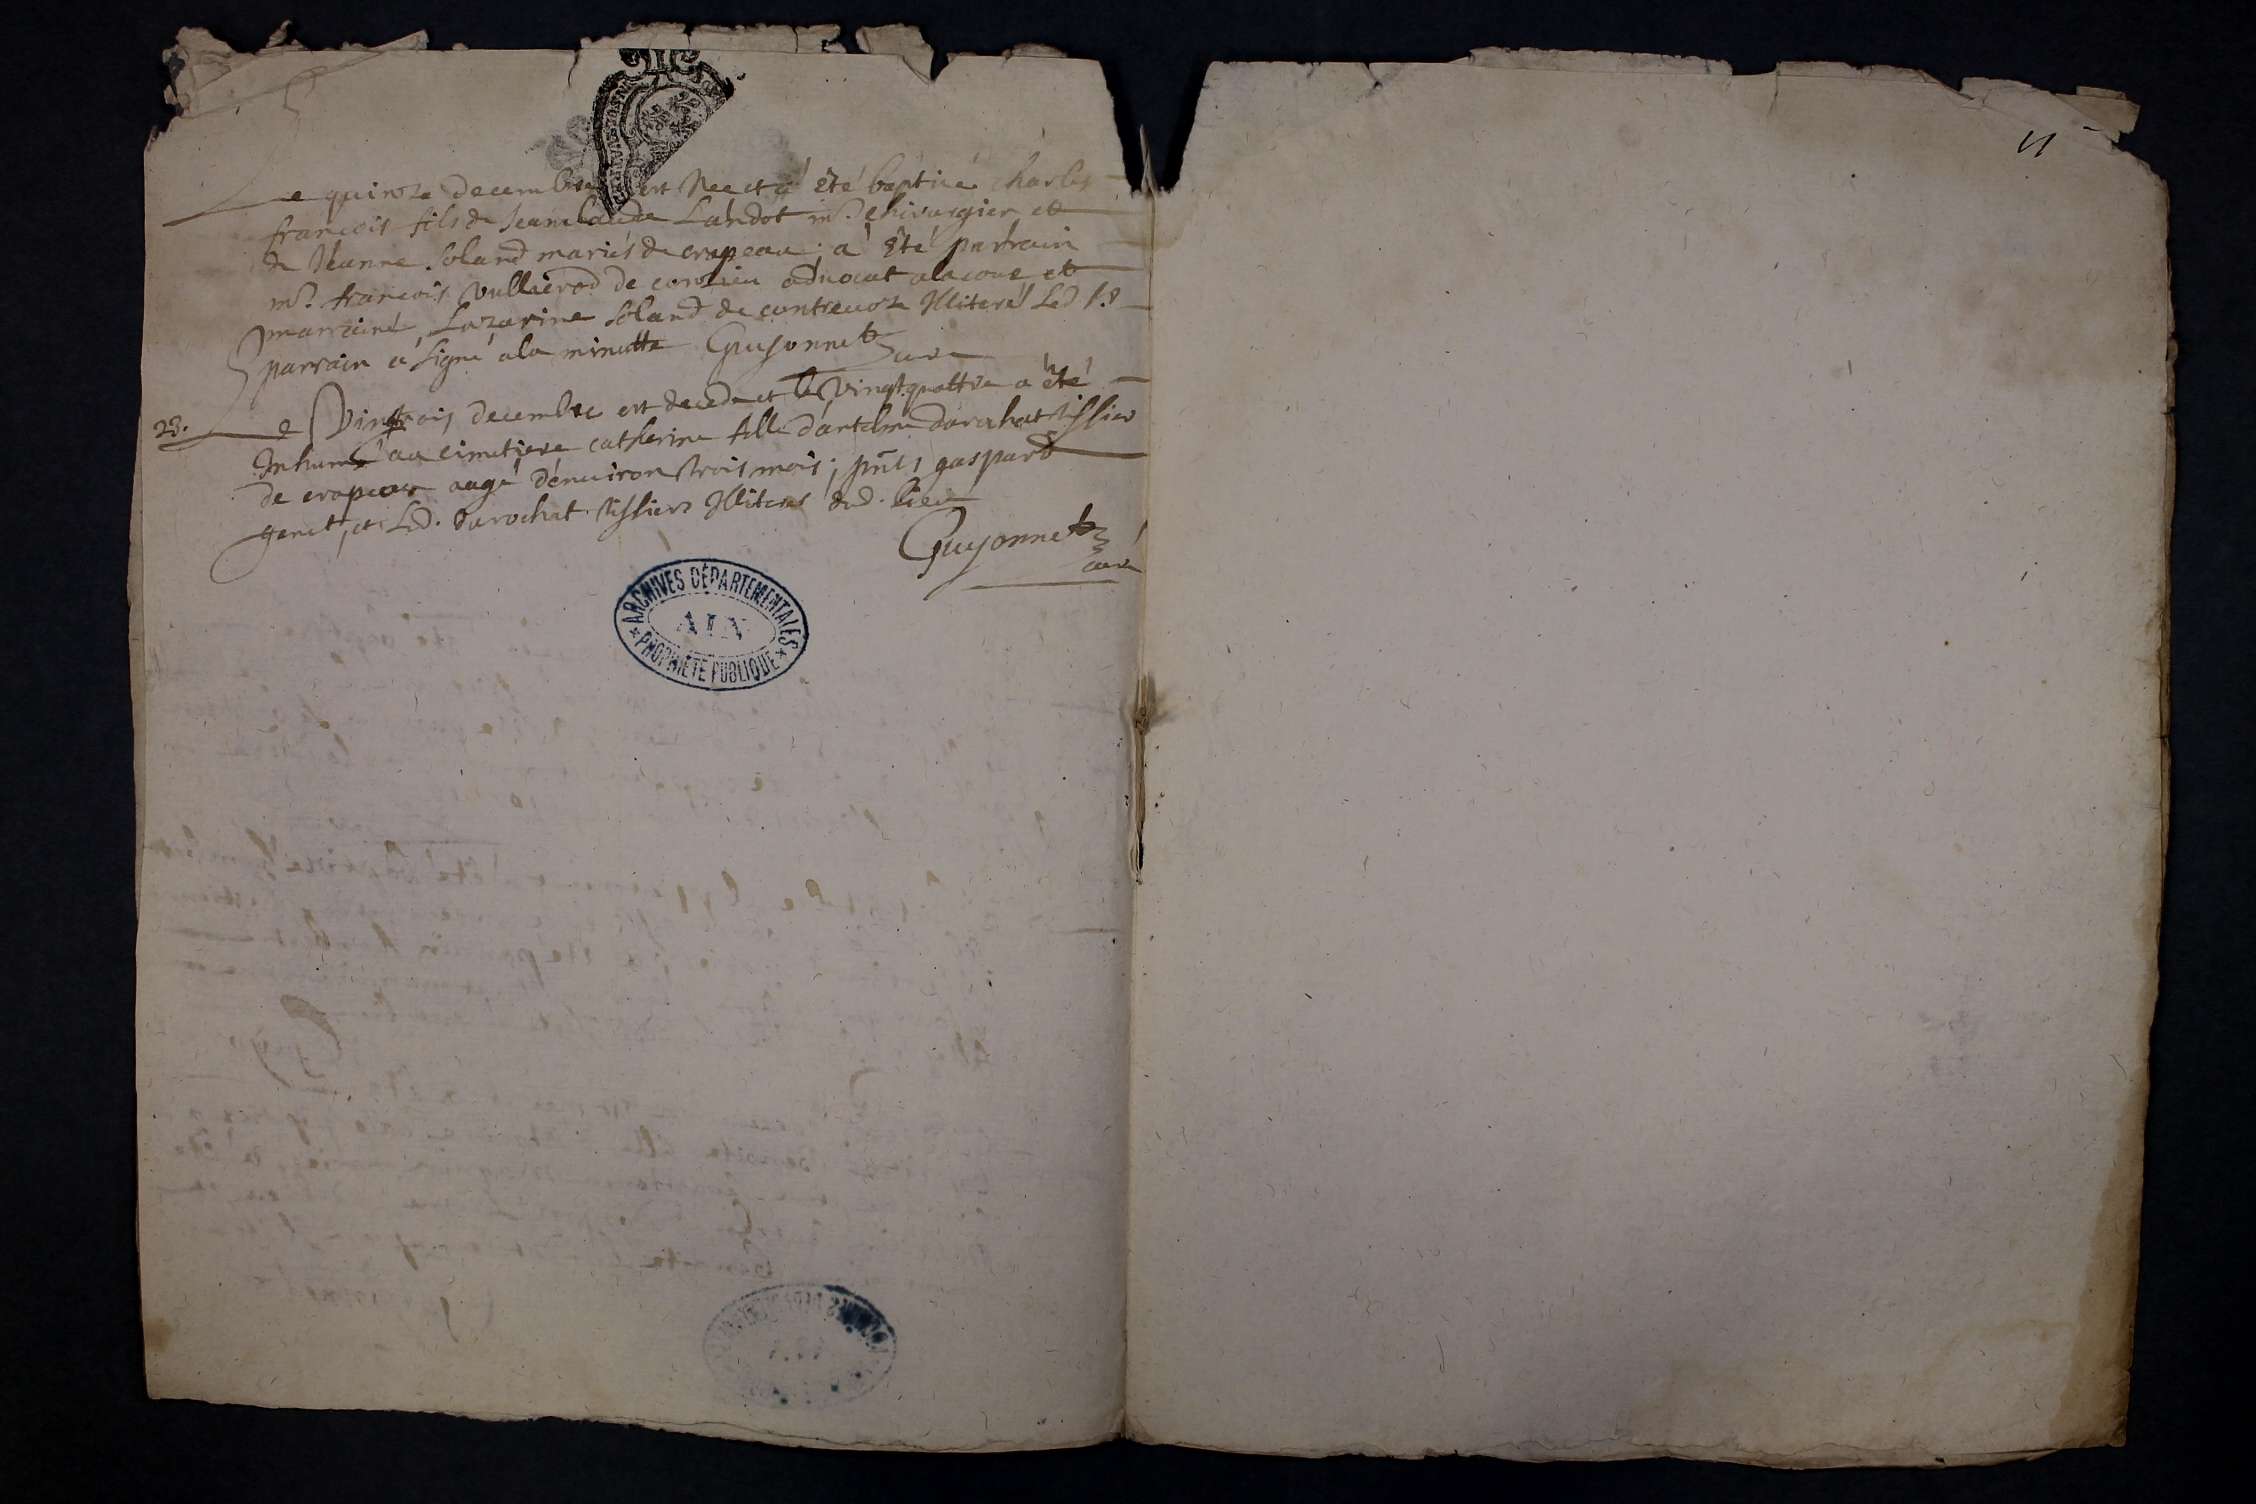 Le quinze decembre est Nee et a été baptisé charles
francois fils de Jeanclaude Landot mr. chirurgien et
de Jeanne Soland mariés de crapeau; a été parrain
mr. francois Vullierod de conzieu advocat a la cour et
marraine Lazarine Soland de contrevoz Illiteré Led. sr.
parrain a signé a la minutte Guyonnet curé
23. Le Vingtrois decembre est decedé et le Vingtquattre a été
Inhumé au cimetiere catherine fille d'antelme Darochat tissier
de crapeau aagé d'enuiron trois mois; pnts gaspard
genet, et Led. Darochat tissiers Illiteres dud. lieu
Guyonnet
curé
ARCHIVES DÉPARTEMENTALES
AIN
PROPRIÉTÉ PUBLIQUE